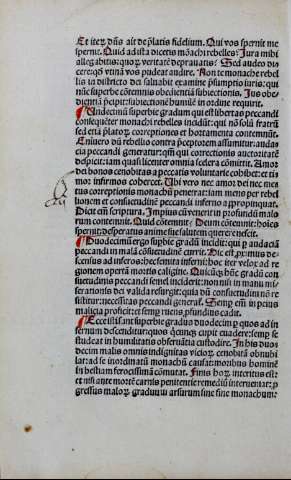 Et iteꝝ dn̄s ait de p̄latis fidelium. Qui vos spernit me
spernit. Quid ad ista dicetis mōachi rebelles: Jura mihi
allegabitis: quoꝝ veritatē deprauatis: Sed audeo di
cere: qd̓ vtinā vos pudeat audire. Non te monache rebel
lis in districto dei saluabit examine p̄sumptio iuris: qui
nūc superbe cōtemnis obedientiā subiectionis. Jus obe
dientiā p̄cipit: subiectionē humilē in ordine requirit.
Undecimū superbie gradum qui est libertas peccandi
consequēter monachi rebelles incidūt: qui nō solū fratrū
sed etiā platoꝝ correptiones et hortamenta contemnūt.
Eniuero dū rebellio contra preceptorem assumitur: audas
cia peccandi generatur: qm̄ qui correctionis auctoritatē
despicit: iam quasi licenter omnia scelera cōmittit. Amor
dei bonos cenobitas a peccatis voluntarie cohibet: et ti
mor infirmos cohercet. Ubi vero nec amor dei nec me
tus correptionis monachū penetrat: iam meno per rebel
lionem et consuetudinē peccandi inferno appropinquat.
Dicit em̄ scriptura. Impius cū venerit in profundū malo
rum contemnit. Quid cōtemnit: Deum cōtemnit: hoīes
spernit: desperatus anime sue salutem querere nescit.
Duodecimū ergo suphie gradū incidit: qui ꝑ audaciā
peccandi in malā cōsuetudinē currit. Dic est primus de
scensus ad inferos: hec semita inferni: hoc iter velox ad re
gionem opertā mortis caligine. Quicūqꝫ huc̄ gradū con
suetudinis peccandi semel inciderit: non nisi in manu mi
serationis dei valida resurgit: quia dum consuetudini nō re
sistitur: necessitas peccandi generat᷑. Semp em̄ in peius
malicia proficit: et semp ruens profundius cadit.
Ecce isti sunt superbie gradus duodecim ꝑ quos ad in
fernum descenditur: quos qcunqꝫ cupit euadere: semp se
studeat in humilitatis obseruātia custodire. In his duo
decim malis omnis indignitas vicioꝝ cenobitā obnubi
lat: ad se inordinatū monachū causat: moribus hominē
in bestiam ferocissimā cōmutat. Finis hoꝝ interitus est:
et nisi ante mortē carnis penitentie remediū interueniat: ꝑ
gressus maloꝝ graduū arsurum sine fine monachum: